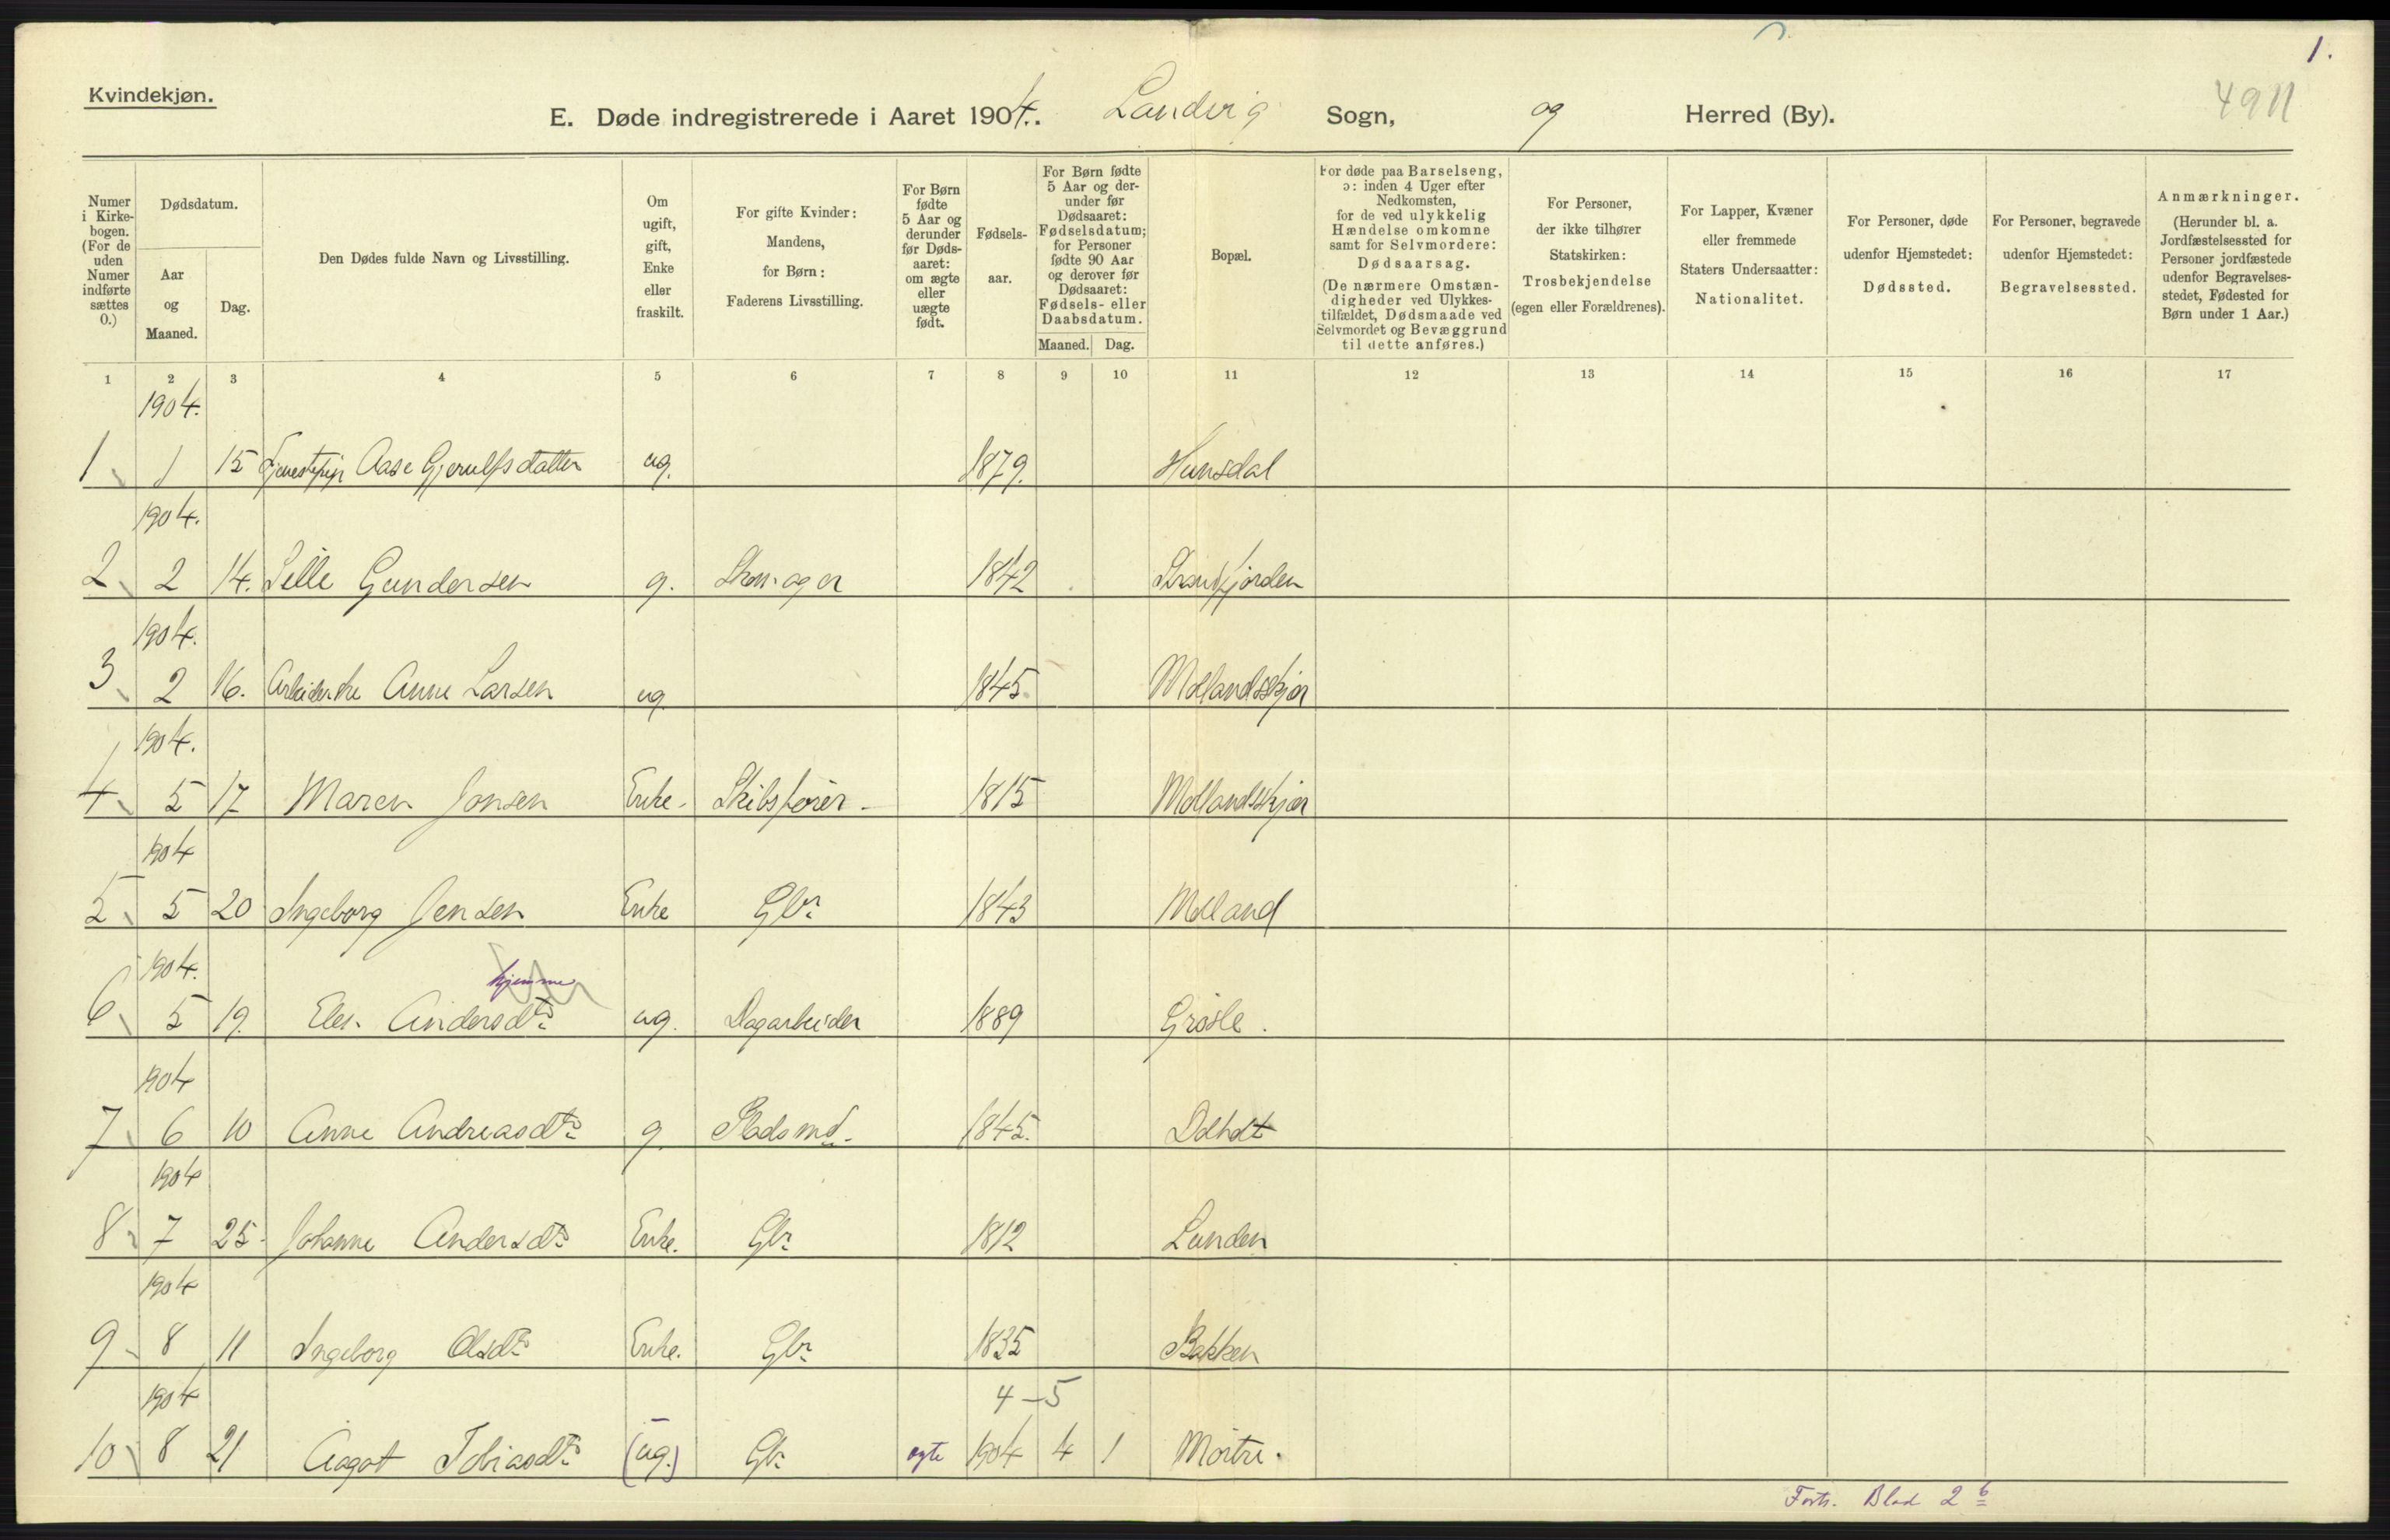 1.
Kvindekjøn.
4911
E. Døde indregistrerede i Aaret 1904. Landvig Sogn, og Herred (By).
Numer i Kirkebogen. (For de uden Numer indførte sættes 0.)
Dødsdatum.
Aar og Maaned.
Dag.
Den Dødes fulde Navn og Livsstilling.
Om ugift, gift, Enke eller fraskilt.
For gifte Kvinder: Mandens, for Børn: Faderens Livsstilling.
For Børn fødte 5 Aar og derunder før Dødsaaret: om ægte eller uægte født.
Fødselsaar.
For Børn fødte 5 Aar og derunder før Dødsaaret: Fødselsdatum; for Personer fødte 90 Aar og derover før Dødsaaret: Fødsels- eller Daabsdatum.
Maaned. Dag.
Bopæl.
For døde paa Barselseng, ɔ: inden 4 Uger efter Nedkomsten, for de ved ulykkelig Hændelse omkomne samt for Selvmordere: Dødsaarsag. (De nærmere Omstændigheder ved Ulykkestilfældet, Dødsmaade ved Selvmordet og Bevæggrund til dette anføres.)
For Personer, der ikke tilhører Statskirken: Trosbekjendelse (egen eller Forældrenes).
For Lapper, Kvæner eller fremmede Staters Undersaatter: Nationalitet.
For Personer, døde udenfor Hjemstedet: Dødssted.
For Personer, begravede udenfor Hjemstedet: Begravelsessted.
Anmærkninger. (Herunder bl. a. Jordfæstelsessted for Personer jordfæstede udenfor Begravelsesstedet, Fødested for Børn under 1 Aar.)
1 2 3 4 5 6 7 8 9 10 11 12 13 14 15 16 17
1904.
1 1 15 Tjenestepige Aase Gjerulfsdatter ug. 1879. Hunsdal
1904.
2 2 14. Sille Gundersen g. 1842
1904.
3 2 16. Arbeiderske Anne Larsen ug 1845. Mollandskjær
1904.
4 5 17 Maren Jonsen Enke - Skibsfører - 1815 Mollandskjær
1904
5 5 20 Ingeborg Jensen Enke Gbr 1843 Molland
1904. hjemme
6 5 19. Ele. Andersdtr ug. Dagarbeider 1889 Grøsle.
1904
7 6 10 Anne Andreasdtr g. Pladsmd. 1845. Dolholt
1904
8 7 25. Johanne Andersdtr Enke. Gbr 1812 Lunden
1904
9 8 11 Ingeborg Olsdtr Enke. Gbr 1835 Bakken
1904 4-5
10 8 21 Aagot Tobiasdtr (ug.) Gbr ægte 1904 4 1
Forts. Blad 2 b